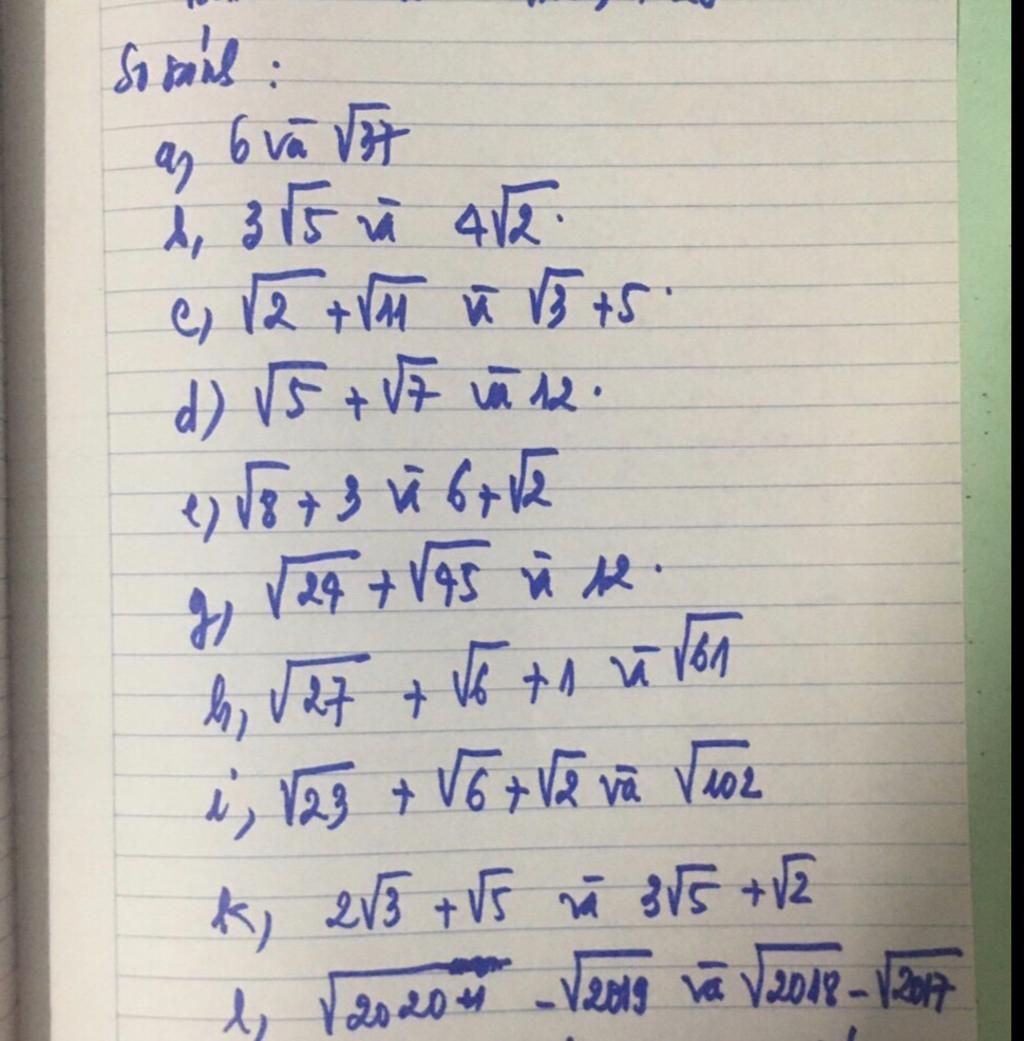 So sánh :
a, 6 và √37
b, 3√5 và 4√2.
c, √2 + √11 và √3 + 5.
d) √5 + √7 và 12.
e) √8 + 3 và 6 + √2
g, √24 + √45 và 12.
h, √27 + √6 + 1 và √61
i, √23 + √6 + √2 và √102
k, 2√3 + √5 và 3√5 + √2
l, √2020 - √2019 và √2018 - √2017